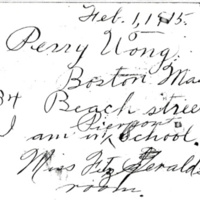 Feb. 1, 1915.
Perry Wong.
Boston Mas
34 Beach stree
I am in Pierpont School.
Miss Fitz Gerald's
room.